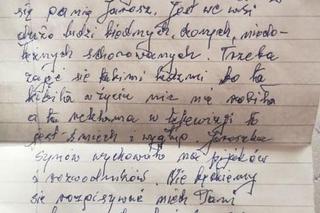 się panią Janosz. Jest we wsi
dużo ludzi biednych, chorych, niedo-
łężnych schorowanych. Trzeba
zająć się takimi ludźmi bo ta
kobita w życiu nic nie robiła
a ta reklama w telewizji to
jest śmiech i wygłup. Jaroszka
synów wychowała na pijaków
i rozwodników. Nie będziemy
się rozpisywać niech Pani